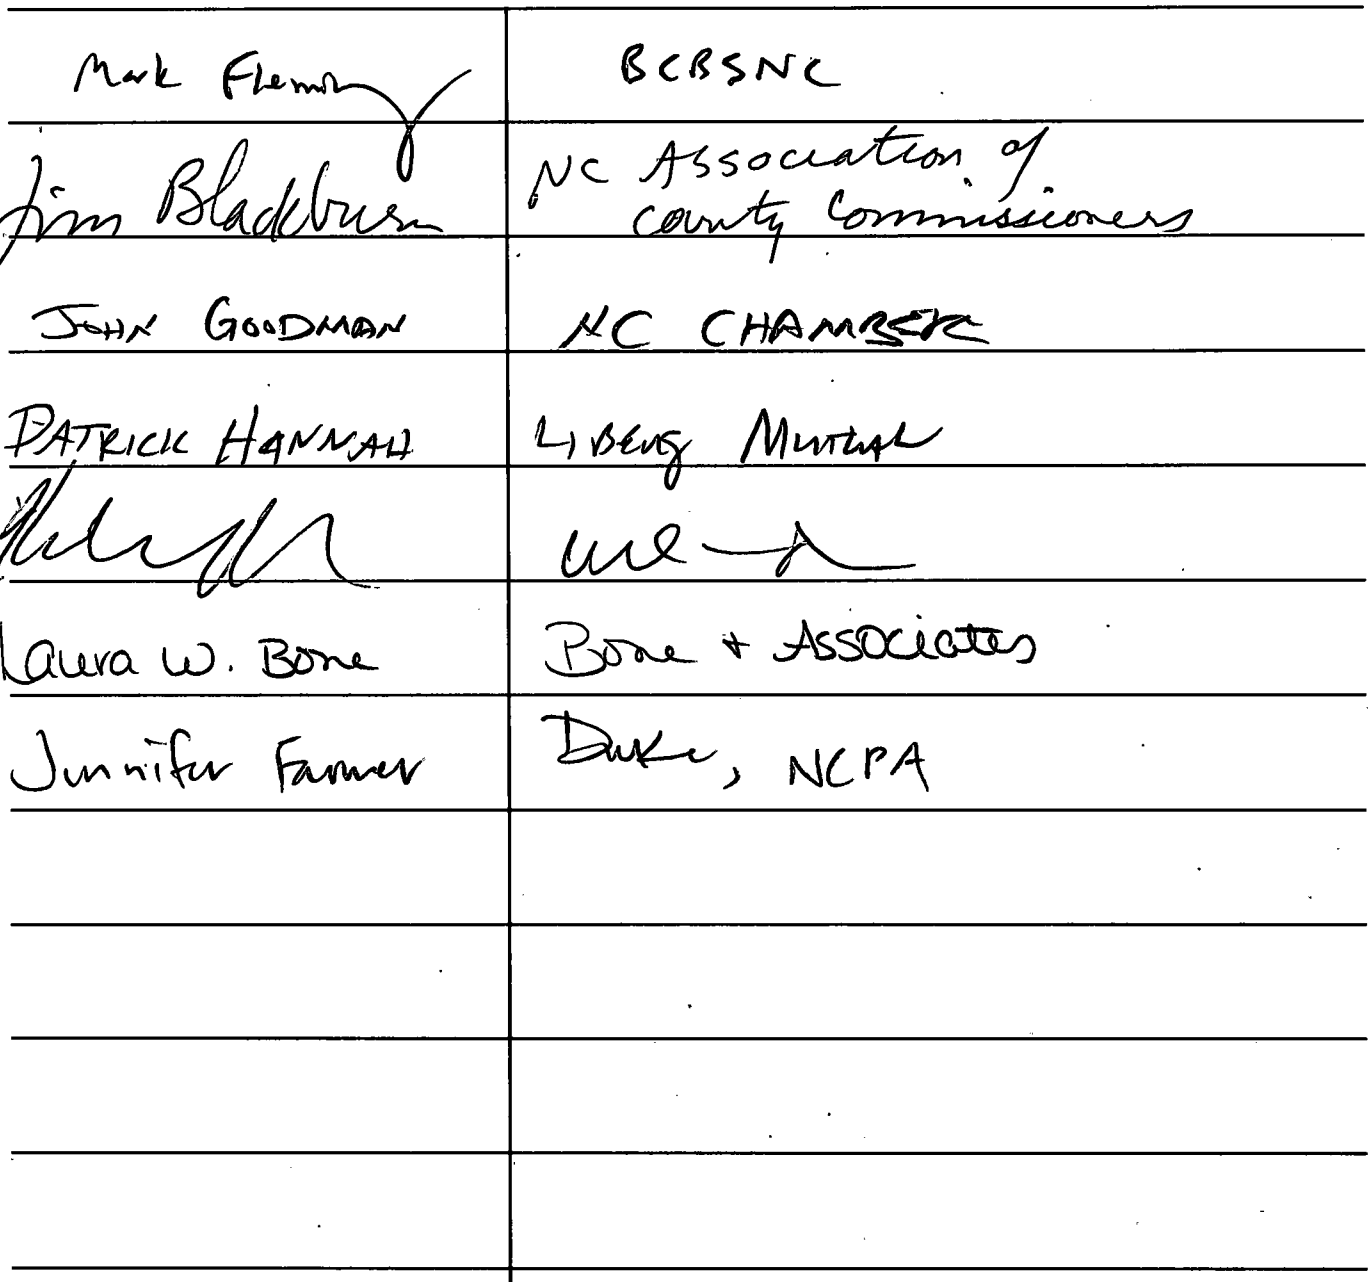 Mark Fleming BCBSNC
Jim Blackburn NC Association of
County Commissioners
JOHN GOODMAN NC CHAMBER
PATRICK HANNAH LIBERTY MUTUAL
Laura W. Bone Bone + Associates
Jennifer Farmer Duke, NCPA